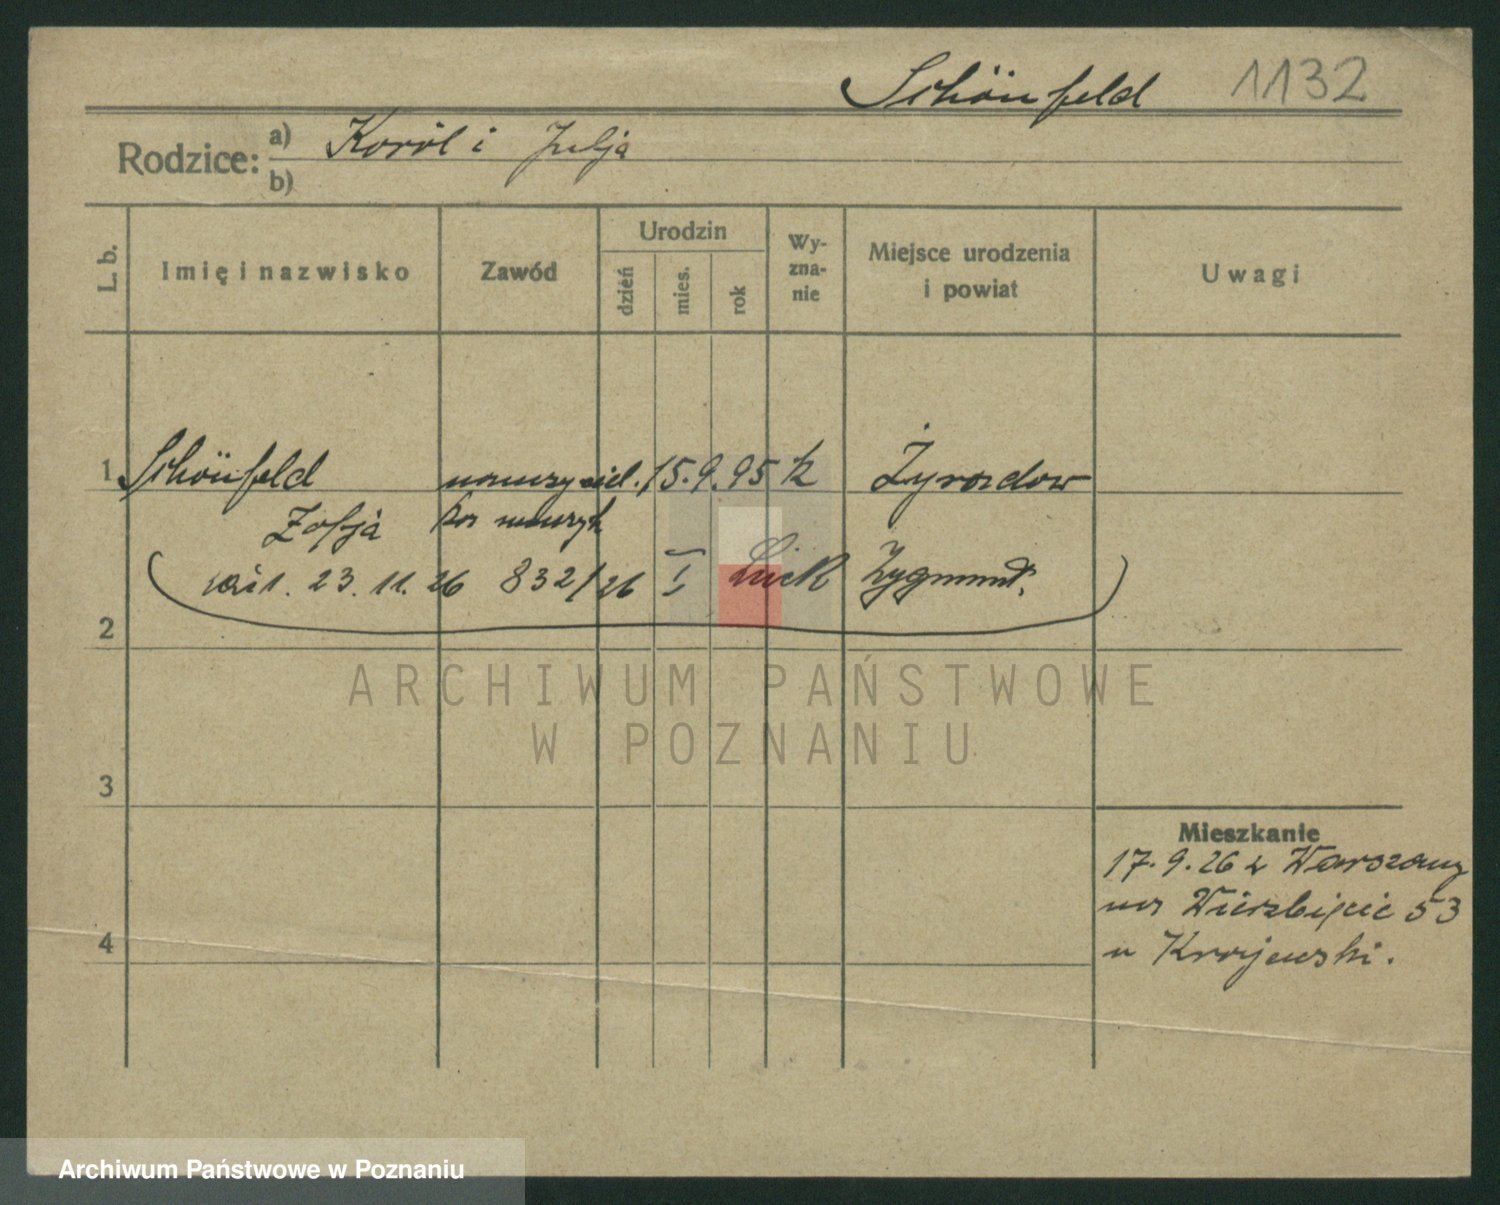 Schönfeld 1132
Rodzice: a) Karól i Julja
b)
L. b. Imię i nazwisko Zawód Urodzin dzień mies. rok Wy-zna-nie Miejsce urodzenia i powiat Uwagi
1 Schönfeld nauczyciel. 15. 9. 95 k Żyrardow
Zofja muzyk
23. 11. 26 832/26 I Luck Zygmunt.
2
ARCHIWUM PAŃSTWOWE
W POZNANIU
3
Mieszkanie
17. 9. 26 z Warszawy
Wierzbięcic 53
4
u Krajewski.
Archiwum Państwowe w Poznaniu